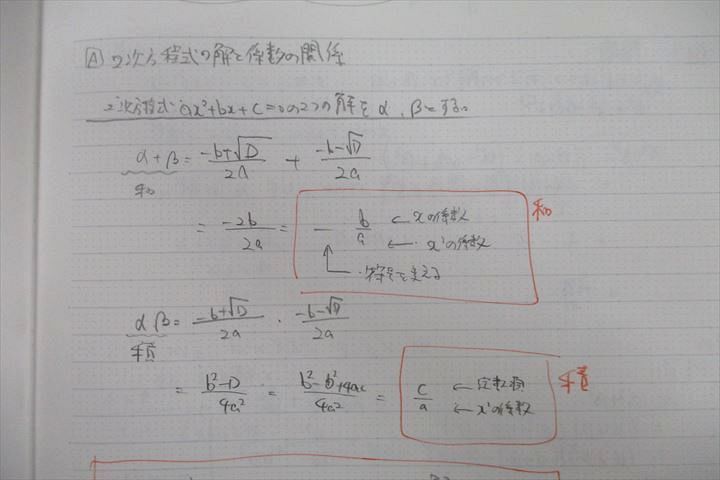 A 2次方程式の解と係数の関係
2次方程式 ax²+bx+c=0の2つの解をα、βとする。
α+β = (-b+√D)/2a + (-b-√D)/2a
和
= -2b/2a = - b/a ← xの係数 和
← x²の係数
符号を変える
αβ = (-b+√D)/2a ・ (-b-√D)/2a
積
= (b²-D)/4a² = (b²-b²+4ac)/4a² = c/a ← 定数項 積
← x²の係数